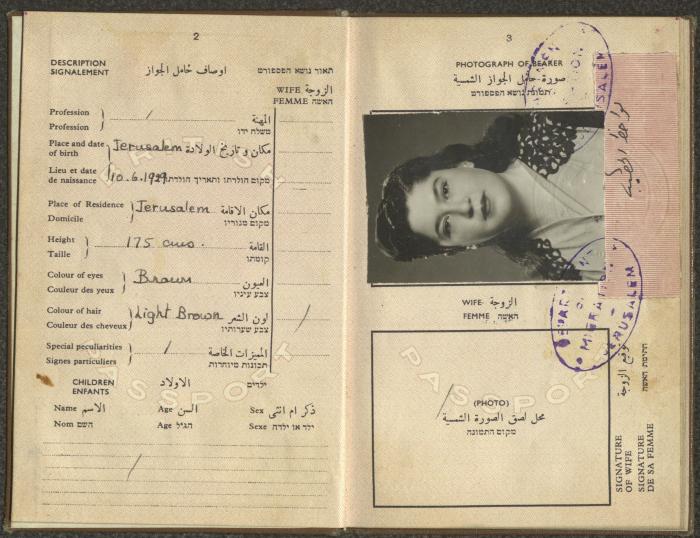 2
DESCRIPTION
SIGNALEMENT
اوصاف حامل الجواز
תאור נושא הפספורט
WIFE الزوجة
FEMME האשה
Profession
Profession
/
المهنة
משלח ידו
Place and date
of birth
Jerusalem
مكان و تاريخ الولادة
Lieu et date
de naissance
10.6.1929
מקום הולדתו ותאריך הולדתו
Place of Residence
Domicile
Jerusalem
مكان الاقامة
מקום מגוריו
Height
Taille
175 cms.
القامة
קומתו
Colour of eyes
Couleur des yeux
Brown
العيون
צבע עיניו
Colour of hair
Couleur des cheveux
Light Brown
لون الشعر
צבע שערותיו
/
Special peculiarities
Signes particuliers
/
المميزات الخاصة
תכונות מיוחדות
CHILDREN
ENFANTS
الاولاد
ילדים
Name الاسم
Age السن
Sex ذكر ام انثى
Nom השם
Age הגיל
Sexe ילד או ילדה
/
PASSPORT
3
PHOTOGRAPH OF BEARER
صورة حامل الجواز الشمسية
תמונת נושא הפספורט
WIFE الزوجة
FEMME האשה
DEPARTMENT
OF
MIGRATION
JERUSALEM
/
(PHOTO)
محل لصق الصورة الشمسية
מקום התמונה
PASSPORT
SIGNATURE
OF WIFE
SIGNATURE
DE SA FEMME
توقيع الزوجة
חתימת האשה